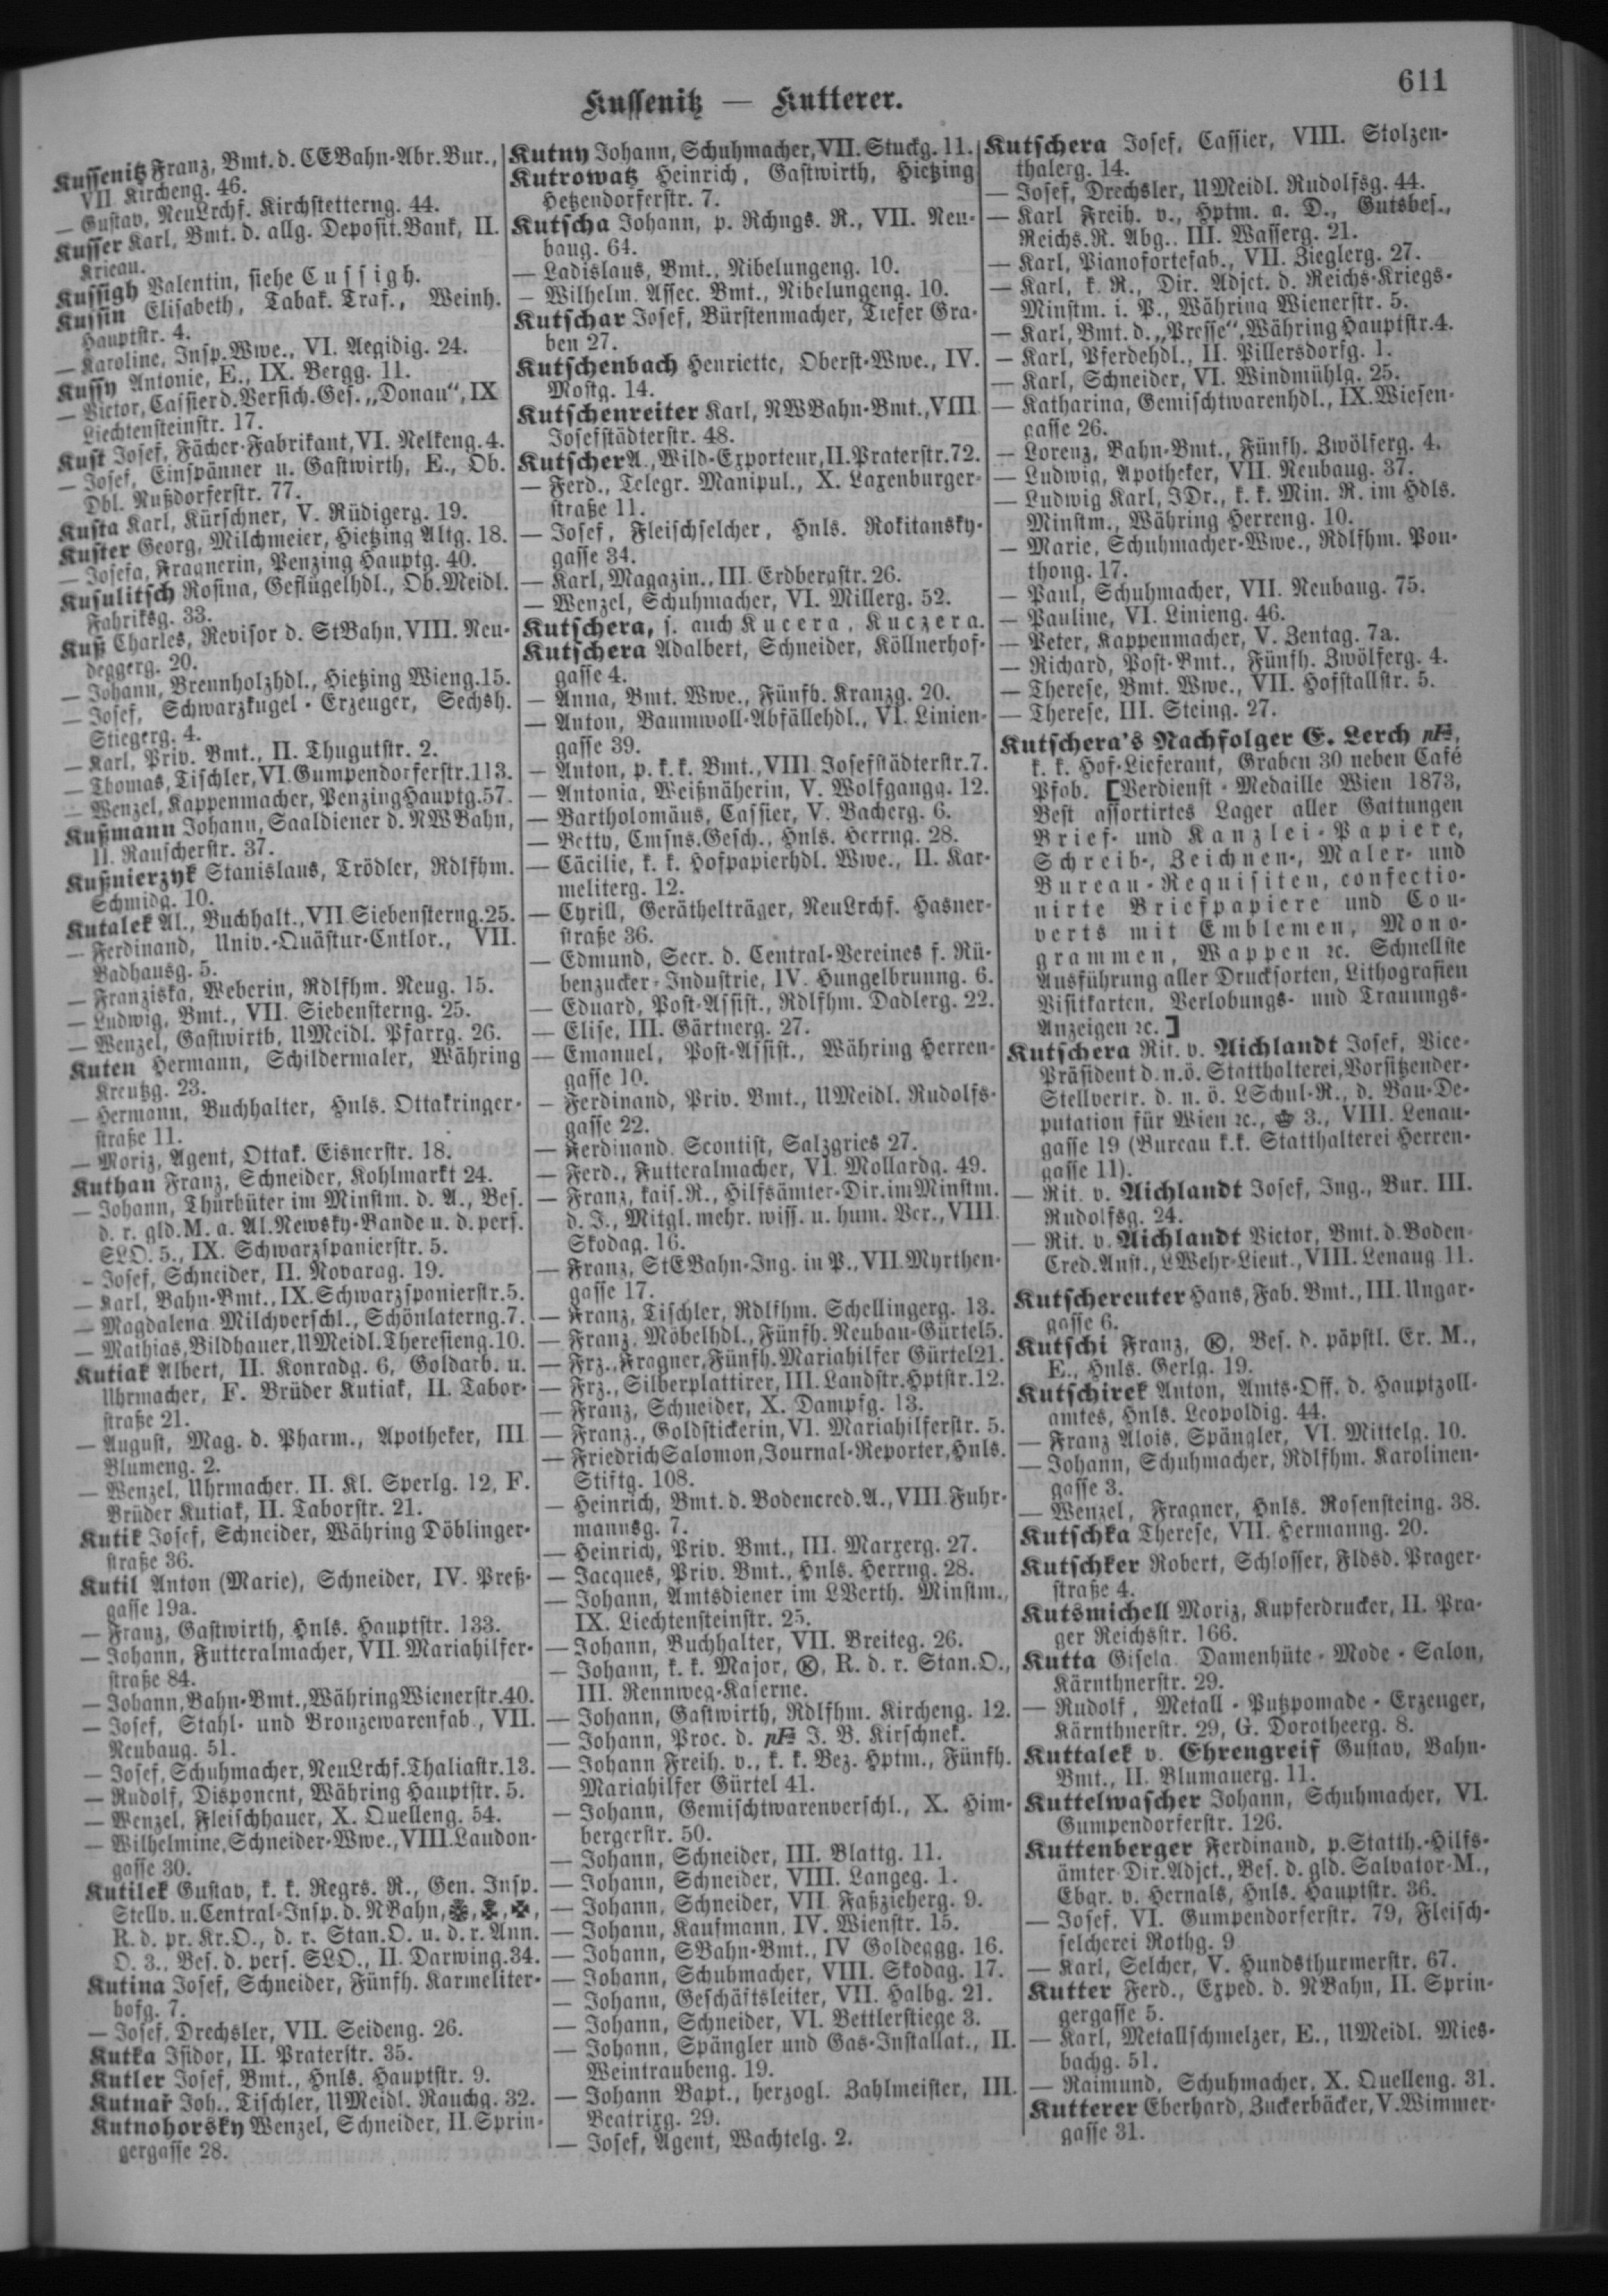 611
Kussenitz — Kutterer.
Kussenitz Franz, Bmt. d. CEBahn-Abr. Bur.,
VII. Kircheng. 46.
— Gustav, NeuLrchf. Kirchstetterng. 44.
Kusser Karl, Bmt. d. allg. Deposit. Bank, II.
Krieau.
Kussigh Valentin, siehe Cussigh.
Kussin Elisabeth, Tabak. Traf., Weinh.
Hauptstr. 4.
— Karoline, Insp. Wwe., VI. Aegidig. 24.
Kussy Antonie, E., IX. Bergg. 11.
— Victor, Cassier d. Versich. Ges. „Donau“, IX
Liechtensteinstr. 17.
Kust Josef, Fächer-Fabrikant, VI. Nelkeng. 4.
— Josef, Einspänner u. Gastwirth, E., Ob.
Dbl. Nußdorferstr. 77.
Kusta Karl, Kürschner, V. Rüdigerg. 19.
Kuster Georg, Milchmeier, Hietzing Altg. 18.
— Josefa, Fragnerin, Penzing Hauptg. 40.
Kusulitsch Rosina, Geflügelhdl., Ob. Meidl.
Fabriksg. 33.
Kuß Charles, Revisor d. StBahn, VIII. Neu-
deggerg. 20.
— Johann, Brennholzhdl., Hietzing Wieng. 15.
— Josef, Schwarzkugel-Erzeuger, Sechsh.
Stiegerg. 4.
— Karl, Priv. Bmt., II. Thugutstr. 2.
— Thomas, Tischler, VI. Gumpendorferstr. 113.
— Wenzel, Kappenmacher, Penzing Hauptg. 57.
Kußmann Johann, Saaldiener d. NWBahn,
II. Rauscherstr. 37.
Kußnierzyk Stanislaus, Trödler, Rdlfhm.
Schmidg. 10.
Kutalek Al., Buchhalt., VII. Siebensterng. 25.
— Ferdinand, Univ.-Quästur-Cntlor., VII.
Badhausg. 5.
— Franziska, Weberin, Rdlfhm. Neug. 15.
— Ludwig, Bmt., VII. Siebensterng. 25.
— Wenzel, Gastwirth, UMeidl. Pfarrg. 26.
Kuten Hermann, Schildermaler, Währing
Kreutzg. 23.
— Hermann, Buchhalter, Hnls. Ottakringer-
straße 11.
— Moriz, Agent, Ottak. Eisnerstr. 18.
Kuthan Franz, Schneider, Kohlmarkt 24.
— Johann, Thürhüter im Minstm. d. A., Bes.
d. r. gld. M. a. Al. Newsky-Bande u. d. pers.
SLO. 5., IX. Schwarzspanierstr. 5.
— Josef, Schneider, II. Novarag. 19.
— Karl, Bahn-Bmt., IX. Schwarzspanierstr. 5.
— Magdalena Milchverschl., Schönlaterng. 7.
— Mathias, Bildhauer, UMeidl. Theresieng. 10.
Kutiak Albert, II. Konradg. 6, Goldarb. u.
Uhrmacher, F. Brüder Kutiak, II. Tabor-
straße 21.
— August, Mag. d. Pharm., Apotheker, III
Blumeng. 2.
— Wenzel, Uhrmacher, II. Kl. Sperlg. 12, F.
Brüder Kutiak, II. Taborstr. 21.
Kutik Josef, Schneider, Währing Döblinger-
straße 36.
Kutil Anton (Marie), Schneider, IV. Preß-
gasse 19a.
— Franz, Gastwirth, Hnls. Hauptstr. 133.
— Johann, Futteralmacher, VII. Mariahilfer-
straße 84.
— Johann, Bahn-Bmt., Währing Wienerstr. 40.
— Josef, Stahl- und Bronzewarenfab., VII.
Neubaug. 51.
— Josef, Schuhmacher, NeuLrchf. Thaliastr. 13.
— Rudolf, Disponent, Währing Hauptstr. 5.
— Wenzel, Fleischhauer, X. Quelleng. 54.
— Wilhelmine, Schneider-Wwe., VIII. Laudon-
gasse 30.
Kutilek Gustav, k. k. Regrs. R., Gen. Insp.
Stellv. u. Central-Insp. d. NBahn,
R. d. pr. Kr. O., d. r. Stan. O. u. d. r. Ann.
O. 3., Bes. d. pers. SLO., II. Darwing. 34.
Kutina Josef, Schneider, Fünfh. Karmeliter-
hofg. 7.
— Josef, Drechsler, VII. Seideng. 26.
Kutka Isidor, II. Praterstr. 35.
Kutler Josef, Bmt., Hnls. Hauptstr. 9.
Kutnař Joh., Tischler, UMeidl. Rauchg. 32.
Kutnohorsky Wenzel, Schneider, II. Sprin-
gergasse 28.
Kutny Johann, Schuhmacher, VII. Stuckg. 11.
Kutrowatz Heinrich, Gastwirth, Hietzing
Hetzendorferstr. 7.
Kutscha Johann, p. Rchngs. R., VII. Neu-
baug. 64.
— Ladislaus, Bmt., Nibelungeng. 10.
— Wilhelm. Assec. Bmt., Nibelungeng. 10.
Kutschar Josef, Bürstenmacher, Tiefer Gra-
ben 27.
Kutschenbach Henriette, Oberst-Wwe., IV.
Mostg. 14.
Kutschenreiter Karl, NWBahn-Bmt., VIII
Josefstädterstr. 48.
Kutscher A., Wild-Exporteur, II. Praterstr. 72.
— Ferd., Telegr. Manipul., X. Laxenburger-
straße 11.
— Josef, Fleischselcher, Hnls. Rokitansky-
gasse 34.
— Karl, Magazin., III. Erdbergstr. 26.
— Wenzel, Schuhmacher, VI. Millerg. 52.
Kutschera, s. auch Kucera, Kuczera.
Kutschera Adalbert, Schneider, Köllnerhof-
gasse 4.
— Anna, Bmt. Wwe., Fünfh. Kranzg. 20.
— Anton, Baumwoll-Abfällehdl., VI. Linien-
gasse 39.
— Anton, p. k. k. Bmt., VIII Josefstädterstr. 7.
— Antonia, Weißnäherin, V. Wolfgangg. 12.
— Bartholomäus, Cassier, V. Bacherg. 6.
— Betty, Cmsns. Gesch., Hnls. Herrng. 28.
— Cäcilie, k. k. Hofpapierhdl. Wwe., II. Kar-
meliterg. 12.
— Cyrill, Geräthelträger, NeuLrchf. Hasner-
straße 36.
— Edmund, Secr. d. Central-Vereines f. Rü-
benzucker-Industrie, IV. Hungelbrunng. 6.
— Eduard, Post-Assist., Rdlfhm. Dadlerg. 22.
— Elise, III. Gärtnerg. 27.
— Emanuel, Post-Assist., Währing Herren-
gasse 10.
— Ferdinand, Priv. Bmt., UMeidl. Rudolfs-
gasse 22.
— Ferdinand Scontist, Salzgries 27.
— Ferd., Futteralmacher, VI. Mollardg. 49.
— Franz, kais. R., Hilfsämter-Dir. im Minstm.
d. J., Mitgl. mehr. wiss. u. hum. Ver., VIII.
Skodag. 16.
— Franz, StEBahn-Ing. in P., VII. Myrthen-
gasse 17.
— Franz, Tischler, Rdlfhm. Schellingerg. 13.
— Franz, Möbelhdl., Fünfh. Neubau-Gürtel 5.
— Frz., Fragner, Fünfh. Mariahilfer Gürtel 21.
— Frz., Silberplattirer, III. Landstr. Hptstr. 12.
— Franz, Schneider, X. Dampfg. 13.
— Franz., Goldstickerin, VI. Mariahilferstr. 5.
— Friedrich Salomon, Journal-Reporter, Hnls.
Stiftg. 108.
— Heinrich, Bmt. d. Bodencred. A., VIII. Fuhr-
mannsg. 7.
— Heinrich, Priv. Bmt., III. Marxerg. 27.
— Jacques, Priv. Bmt., Hnls. Herrng. 28.
— Johann, Amtsdiener im LVerth. Minstm.,
IX. Liechtensteinstr. 25.
— Johann, Buchhalter, VII. Breiteg. 26.
— Johann, k. k. Major, Ⓚ, R. d. r. Stan. O.,
III. Rennweg-Kaserne.
— Johann, Gastwirth, Rdlfhm. Kircheng. 12.
— Johann, Proc. d. pF: J. B. Kirschnek.
— Johann Freih. v., k. k. Bez. Hptm., Fünfh.
Mariahilfer Gürtel 41.
— Johann, Gemischtwarenverschl., X. Him-
bergerstr. 50.
— Johann, Schneider, III. Blattg. 11.
— Johann, Schneider, VIII. Langeg. 1.
— Johann, Schneider, VII. Faßzieherg. 9.
— Johann, Kaufmann, IV. Wienstr. 15.
— Johann, SBahn-Bmt., IV Goldeggg. 16.
— Johann, Schuhmacher, VIII. Skodag. 17.
— Johann, Geschäftsleiter, VII. Halbg. 21.
— Johann, Schneider, VI. Bettlerstiege 3.
— Johann, Spängler und Gas-Installat., II.
Weintraubeng. 19.
— Johann Bapt., herzogl. Zahlmeister, III.
Beatrixg. 29.
— Josef, Agent, Wachtelg. 2.
Kutschera Josef, Cassier, VIII. Stolzen-
thalerg. 14.
— Josef, Drechsler, UMeidl. Rudolfsg. 44.
— Karl Freih. v., Hptm. a. D., Gutsbes.,
Reichs. R. Abg., III. Wasserg. 21.
— Karl, Pianofortefab., VII. Zieglerg. 27.
— Karl, k. R., Dir. Adjct. d. Reichs-Kriegs-
Minstm. i. P., Währing Wienerstr. 5.
— Karl, Bmt. d. „Presse“, Währing Hauptstr. 4.
— Karl, Pferdehdl., II. Pillersdorfg. 1.
— Karl, Schneider, VI. Windmühlg. 25.
— Katharina, Gemischtwarenhdl., IX. Wiesen-
gasse 26.
— Lorenz, Bahn-Bmt., Fünfh. Zwölferg. 4.
— Ludwig, Apotheker, VII. Neubaug. 37.
— Ludwig Karl, JDr., k. k. Min. R. im Hdls.
Minstm., Währing Herreng. 10.
— Marie, Schuhmacher-Wwe., Rdlfhm. Pou-
thong. 17.
— Paul, Schuhmacher, VII. Neubaug. 75.
— Pauline, VI. Linieng. 46.
— Peter, Kappenmacher, V. Zentag. 7a.
— Richard, Post-Bmt., Fünfh. Zwölferg. 4.
— Therese, Bmt. Wwe., VII. Hofstallstr. 5.
— Therese, III. Steing. 27.
Kutschera's Nachfolger E. Lerch pF:,
k. k. Hof-Lieferant, Graben 30 neben Café
Pfob. [Verdienst-Medaille Wien 1873,
Best assortirtes Lager aller Gattungen
Brief- und Kanzlei-Papiere,
Schreib-, Zeichnen-, Maler- und
Bureau-Requisiten, confectio-
nirte Briefpapiere und Cou-
verts mit Emblemen, Mono-
grammen, Wappen ꝛc. Schnellste
Ausführung aller Drucksorten, Lithografien
Visitkarten, Verlobungs- und Trauungs-
Anzeigen ꝛc.]
Kutschera Rit. v. Aichlandt Josef, Vice-
Präsident d. n. ö. Statthalterei, Vorsitzender-
Stellvertr. d. n. ö. LSchul-R., d. Bau-De-
putation für Wien ꝛc., 3., VIII. Lenau-
gasse 19 (Bureau k. k. Statthalterei Herren-
gasse 11).
— Rit. v. Aichlandt Josef, Ing., Bur. III.
Rudolfsg. 24.
— Rit. v. Aichlandt Victor, Bmt. d. Boden-
Cred. Anst., LWehr-Lieut., VIII. Lenaug 11.
Kutschereuter Hans, Fab. Bmt., III. Ungar-
gasse 6.
Kutschi Franz, Ⓚ, Bes. d. päpstl. Er. M.,
E., Hnls. Gerlg. 19.
Kutschirek Anton, Amts-Off. d. Hauptzoll-
amtes, Hnls. Leopoldig. 44.
— Franz Alois, Spängler, VI. Mittelg. 10.
— Johann, Schuhmacher, Rdlfhm. Karolinen-
gasse 3.
— Wenzel, Fragner, Hnls. Rosensteing. 38.
Kutschka Therese, VII. Hermanng. 20.
Kutschker Robert, Schlosser, Fldsd. Prager-
straße 4.
Kutsmichell Moriz, Kupferdrucker, II. Pra-
ger Reichsstr. 166.
Kutta Gisela Damenhüte-Mode-Salon,
Kärnthnerstr. 29.
— Rudolf, Metall-Putzpomade-Erzeuger,
Kärnthnerstr. 29, G. Dorotheerg. 8.
Kuttalek v. Ehrengreif Gustav, Bahn-
Bmt., II. Blumauerg. 11.
Kuttelwascher Johann, Schuhmacher, VI.
Gumpendorferstr. 126.
Kuttenberger Ferdinand, p. Statth.-Hilfs-
ämter-Dir. Adjct., Bes. d. gld. Salvator-M.,
Ebgr. v. Hernals, Hnls. Hauptstr. 36.
— Josef, VI. Gumpendorferstr. 79, Fleisch-
selcherei Rothg. 9
— Karl, Selcher, V. Hundsthurmerstr. 67.
Kutter Ferd., Exped. d. NBahn, II. Sprin-
gergasse 5.
— Karl, Metallschmelzer, E., UMeidl. Mies-
bachg. 51.
— Raimund, Schuhmacher, X. Quelleng. 31.
Kutterer Eberhard, Zuckerbäcker, V. Wimmer-
gasse 31.